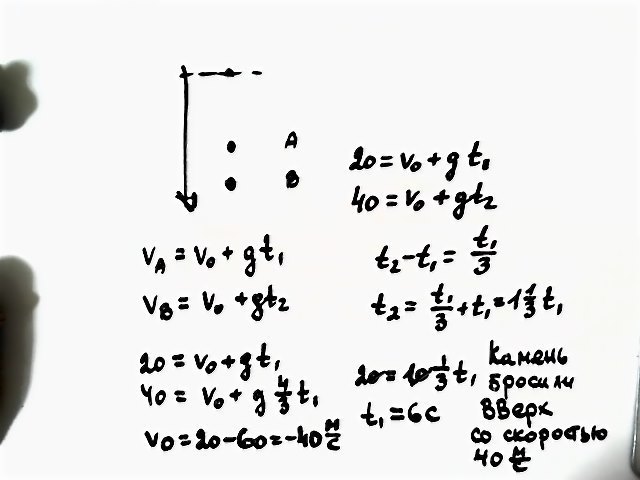 A
B
20 = v₀ + g t₁
40 = v₀ + gt₂
v_A = v₀ + gt₁
t₂ - t₁ = t₁/3
v_B = v₀ + gt₂
t₂ = t₁/3 + t₁ = 1 1/3 t₁
20 = v₀ + gt₁
40 = v₀ + g 4/3 t₁
v₀ = 20 - 60 = -40 м/с
20 = 10 1/3 t₁
t₁ = 6с
Камень
бросили
вверх
со скоростью
40 м/с